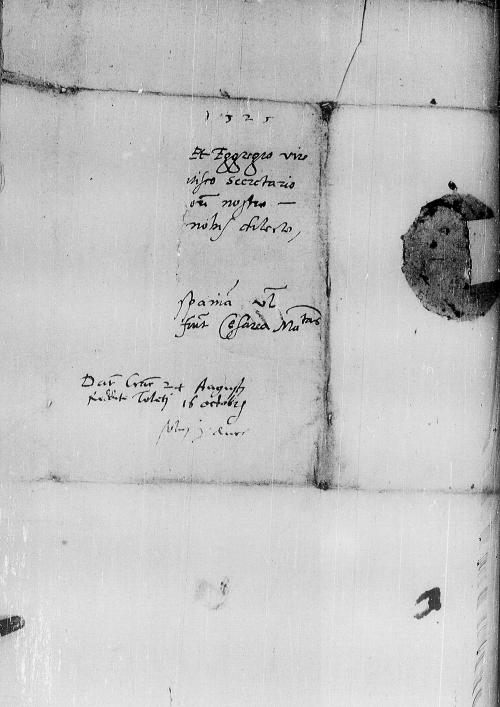 1525
Et Eggregio viro
secretario
nostro —
nobis dilecto,
spania vl
fuit Cesarea Ma tas
Dat Crac 24 Augusti
reddite Toleti 16 octobris